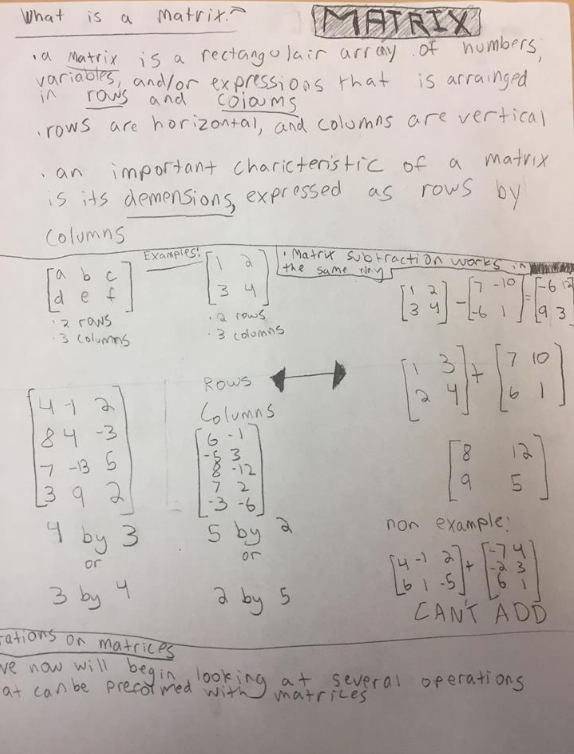 What is a Matrix?
MATRIX
. a Matrix is a rectangulair array of numbers,
variables, and/or expressions that is arrainged
in rows and coioums
. rows are horizontal, and columns are vertical
. an important charicteristic of a matrix
is its demensions, expressed as rows by
columns
Examples:
[a b c
d e f]
· 2 rows
· 3 columns
[1 2
3 4]
· 2 rows
· 3 columns
· Matrix subtraction works in
the same way
[1 2
3 4] - [7 -10
-6 1] = [-6 12
9 3
[1 3
2 4] + [7 10
6 1]
[8 12
9 5]
[4 -1 2
8 4 -3
-7 -13 5
3 9 2]
4 by 3
or
3 by 4
Rows
Columns
[6 -1
-5 3
8 -12
7 2
-3 -6]
5 by 2
or
2 by 5
non example:
[4 -1 2
6 1 -5] + [-7 4
-2 3
6 1]
CAN'T ADD
rations on matrices
ve now will begin looking at several operations
at can be preformed with matrices